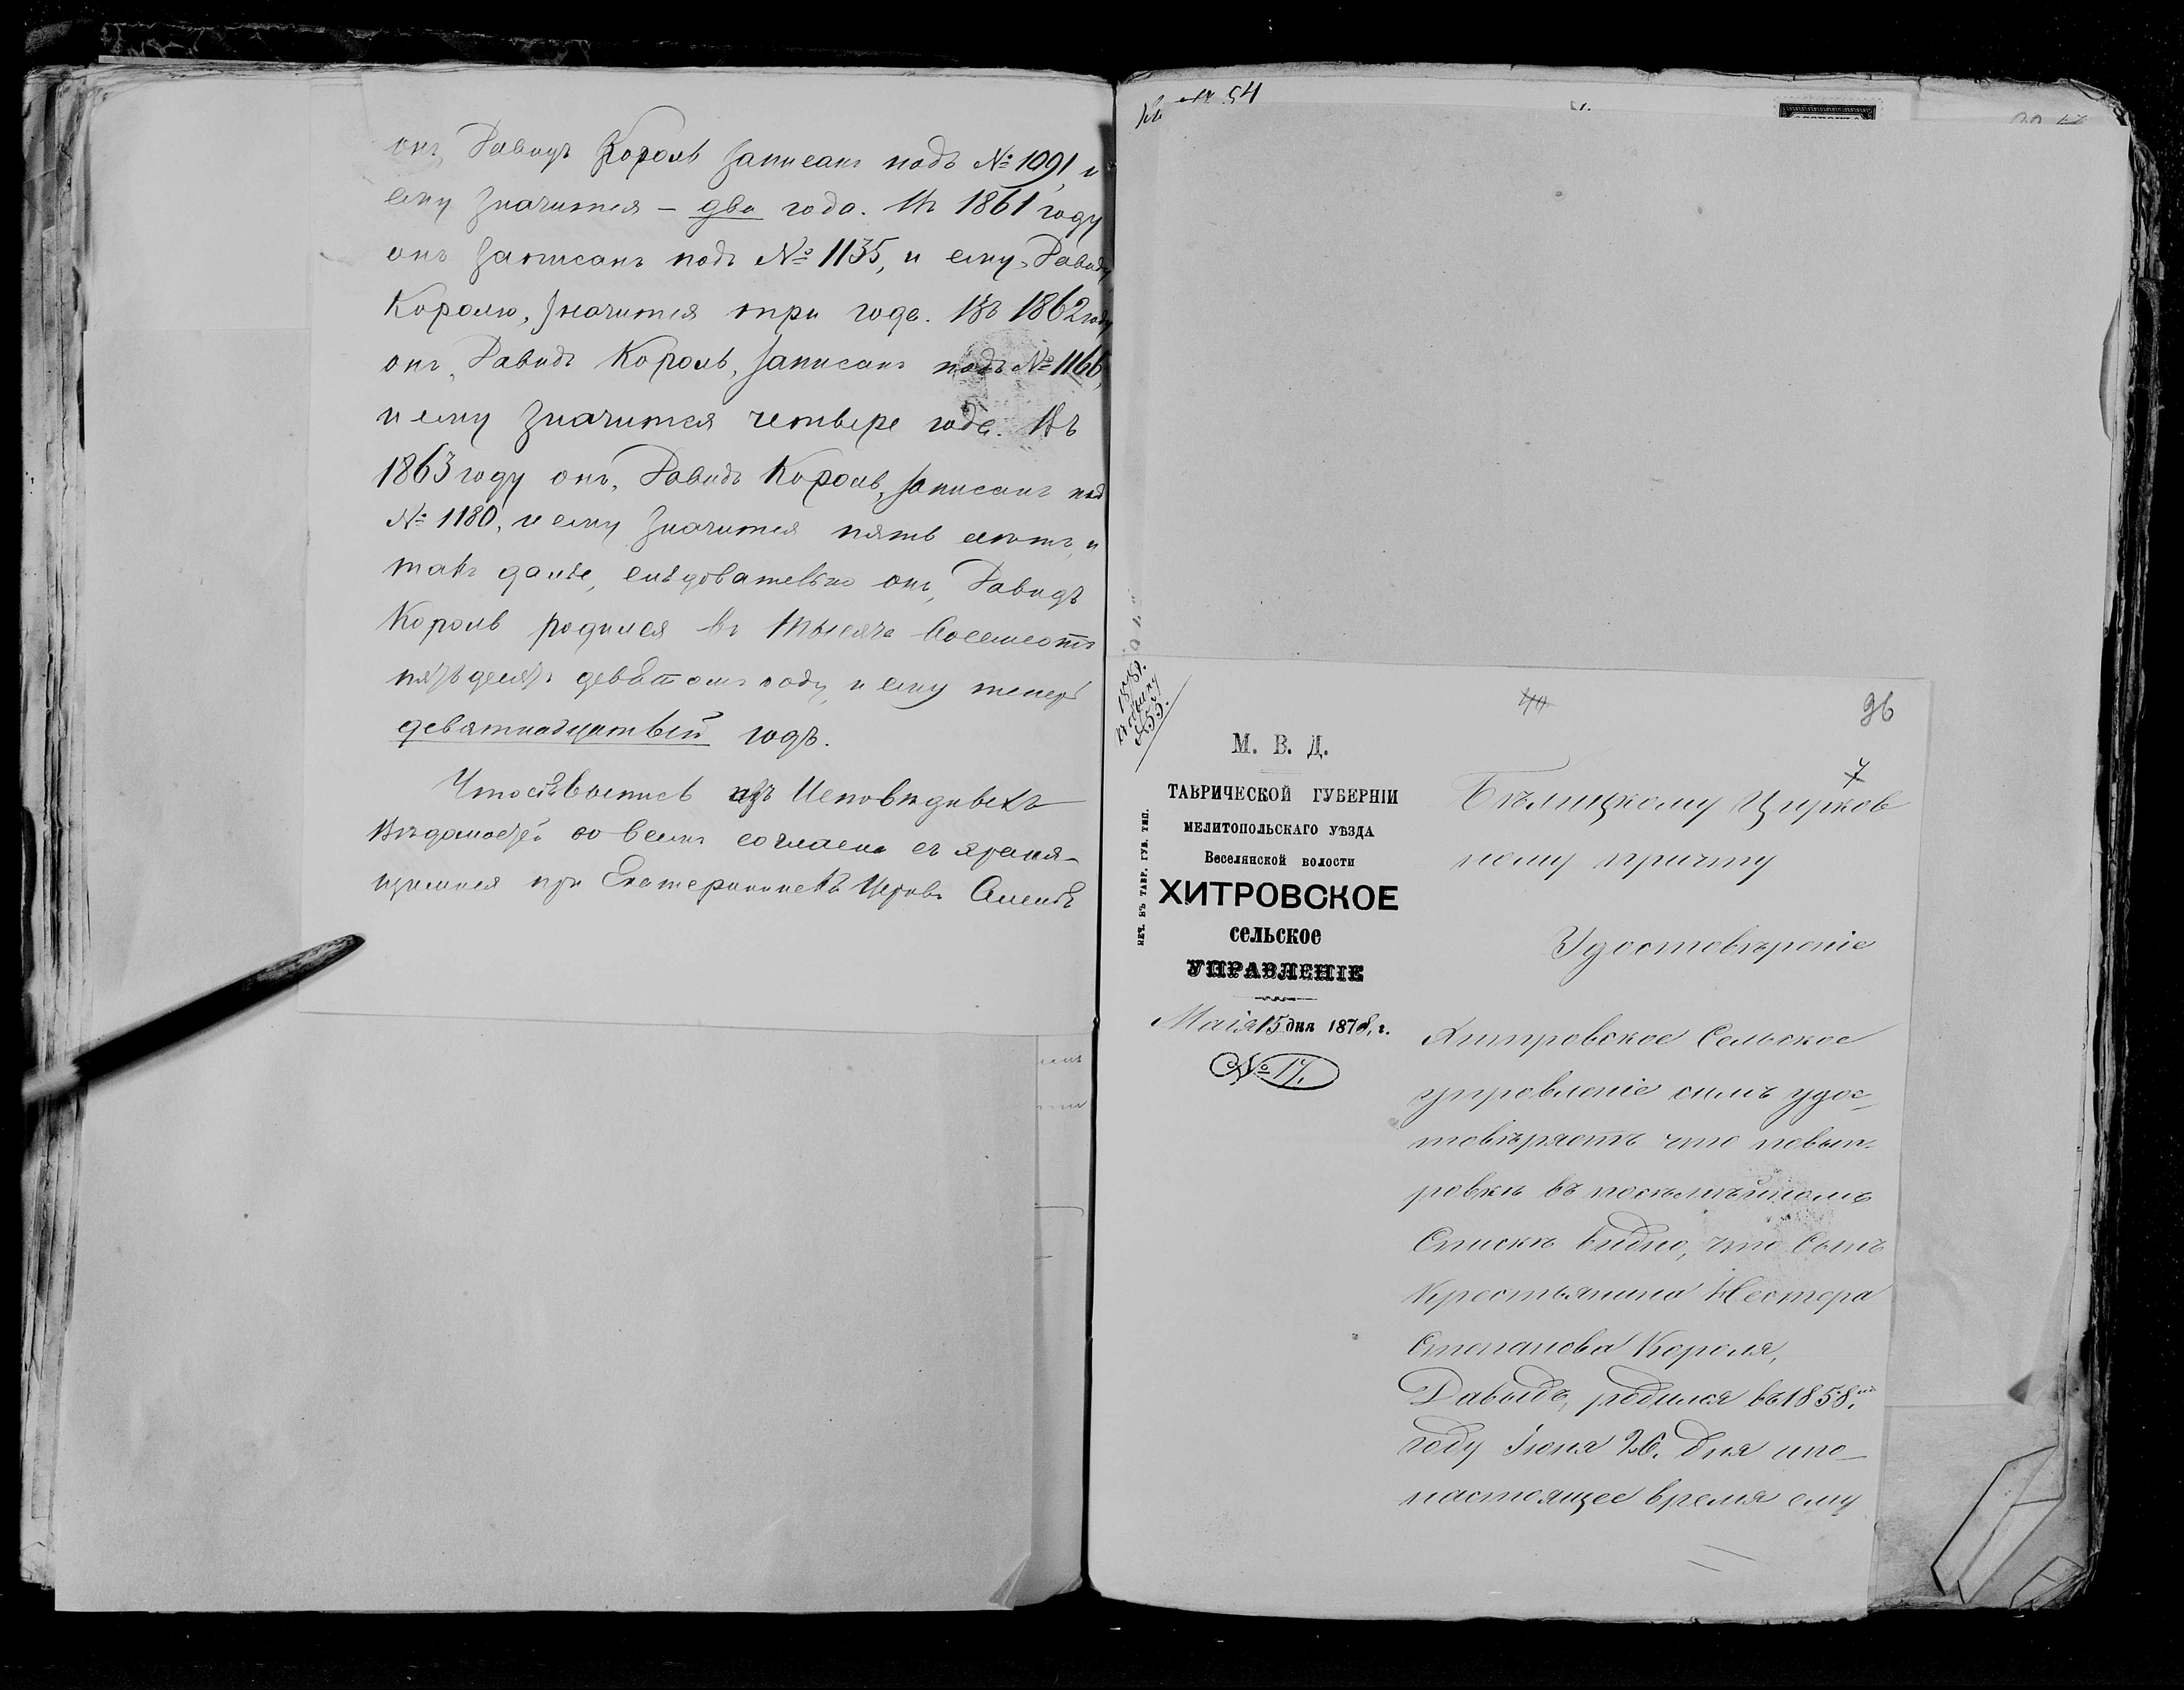 онъ, Давидъ Король записанъ подъ № 1091, и
ему значится – два года. Въ 1861 году
онъ записанъ подъ № 1135, и ему, Давиду
Королю, значится три года. Въ 1862 году
онъ, Давидъ Король, записанъ подъ № 1166,
и ему значится четыре года. Въ
1863 году онъ, Давидъ Король, записанъ под
№ 1180, и ему значится пять летъ, и
такъ далѣе, слѣдовательно онъ, Давидъ
Король родился въ тысяча восемсотъ
девятомъ году, и ему теперь
девятнадцатый годъ.
Что выпись изъ Исповѣдныхъ
Вѣдомостей во всемъ согласна съ храня-
щимися при Церкв.
54
1878 г.
№ 55.
40
96
7
М. В. Д.
ТАВРИЧЕСКОЙ ГУБЕРНІИ
МЕЛИТОПОЛЬСКАГО УѢЗДА
Веселянской волости
ХИТРОВСКОЕ
сельское
УПРАВЛЕНІЕ
Маія 15 дня 1878, г.
№ 17.
ПЕЧ. ВЪ ТАВР. ГУБ. ТИП.
Бѣлицкому Церков
ному причту
Удостовѣреніе
Хитровское Сельское
управленіе симъ удос-
товѣряетъ что повып-
ровкѣ въ посѣмѣйномъ
Спискѣ видно, что Сынъ
Крестьянина Нестера
Степанова Короля,
Давыдъ, родился въ 1858.мъ
году Іюня 26. дня ипо-
настоящее время ему